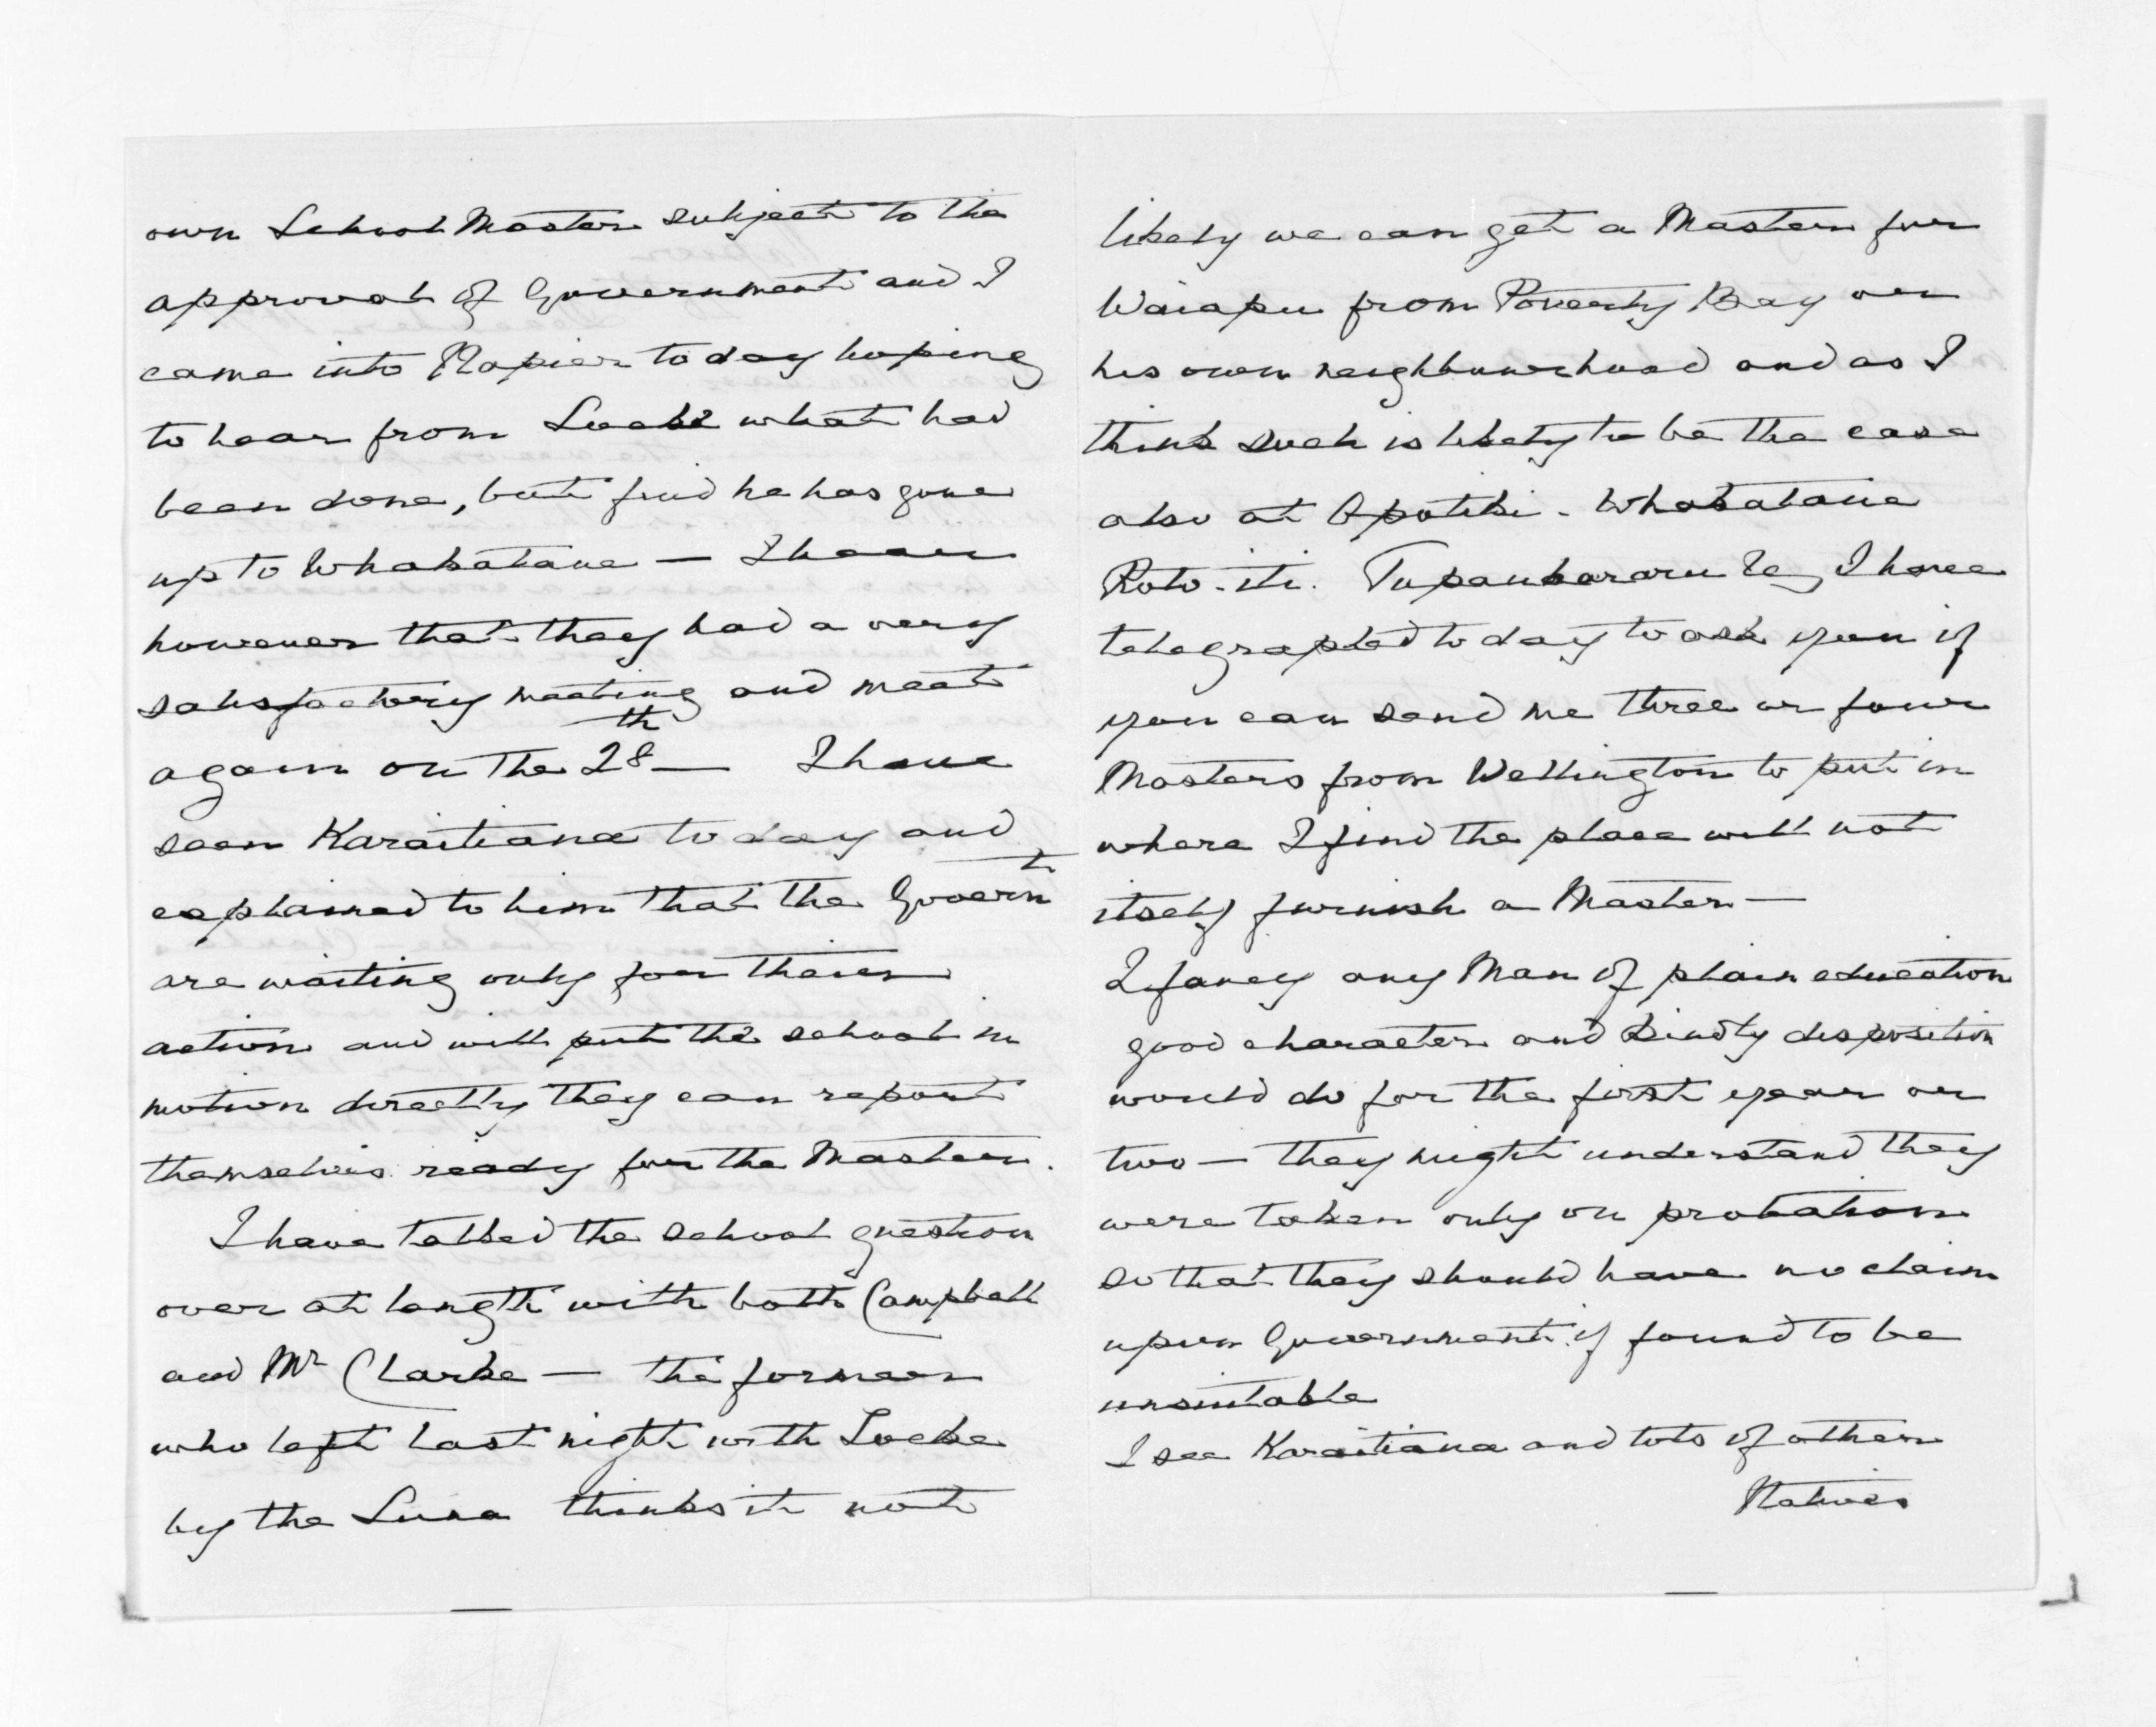 own School Master subject to the
approval of Government and I
came into Napier today hoping
to hear from Locke what had
been done, but find he has gone
up to Whakatane — I hear
however that they had a very
satisfactory meeting and meet
again on the 28th — I have
seen Karaitiana today and
explained to him that the Governt
are waiting only for their
action and will put the school in
motion directly they can report
themselves ready for the Master.
I have talked the school question
over at length with both Campbell
and Mr Clarke — the former
who left last night with Locke
by the Luna thinks it not
likely we can get a Master for
Waiapu from Poverty Bay or
his own neighbourhood and as I
think such is likely to be the case
also at Opotiki - Whakatane
Roto-iti. Tapuaekararu &c I have
telegraphed today to ask you if
you can send me three or four
Masters from Wellington to put in
where I find the place will not
itself furnish a Master —
I fancy any Man of plain education
good character and kindly disposition
would do for the first year or
two — they might understand they
were taken only on probation
so that they should have no claim
upon Government if found to be
unsuitable
I see Karaitiana and lots of other
Natives